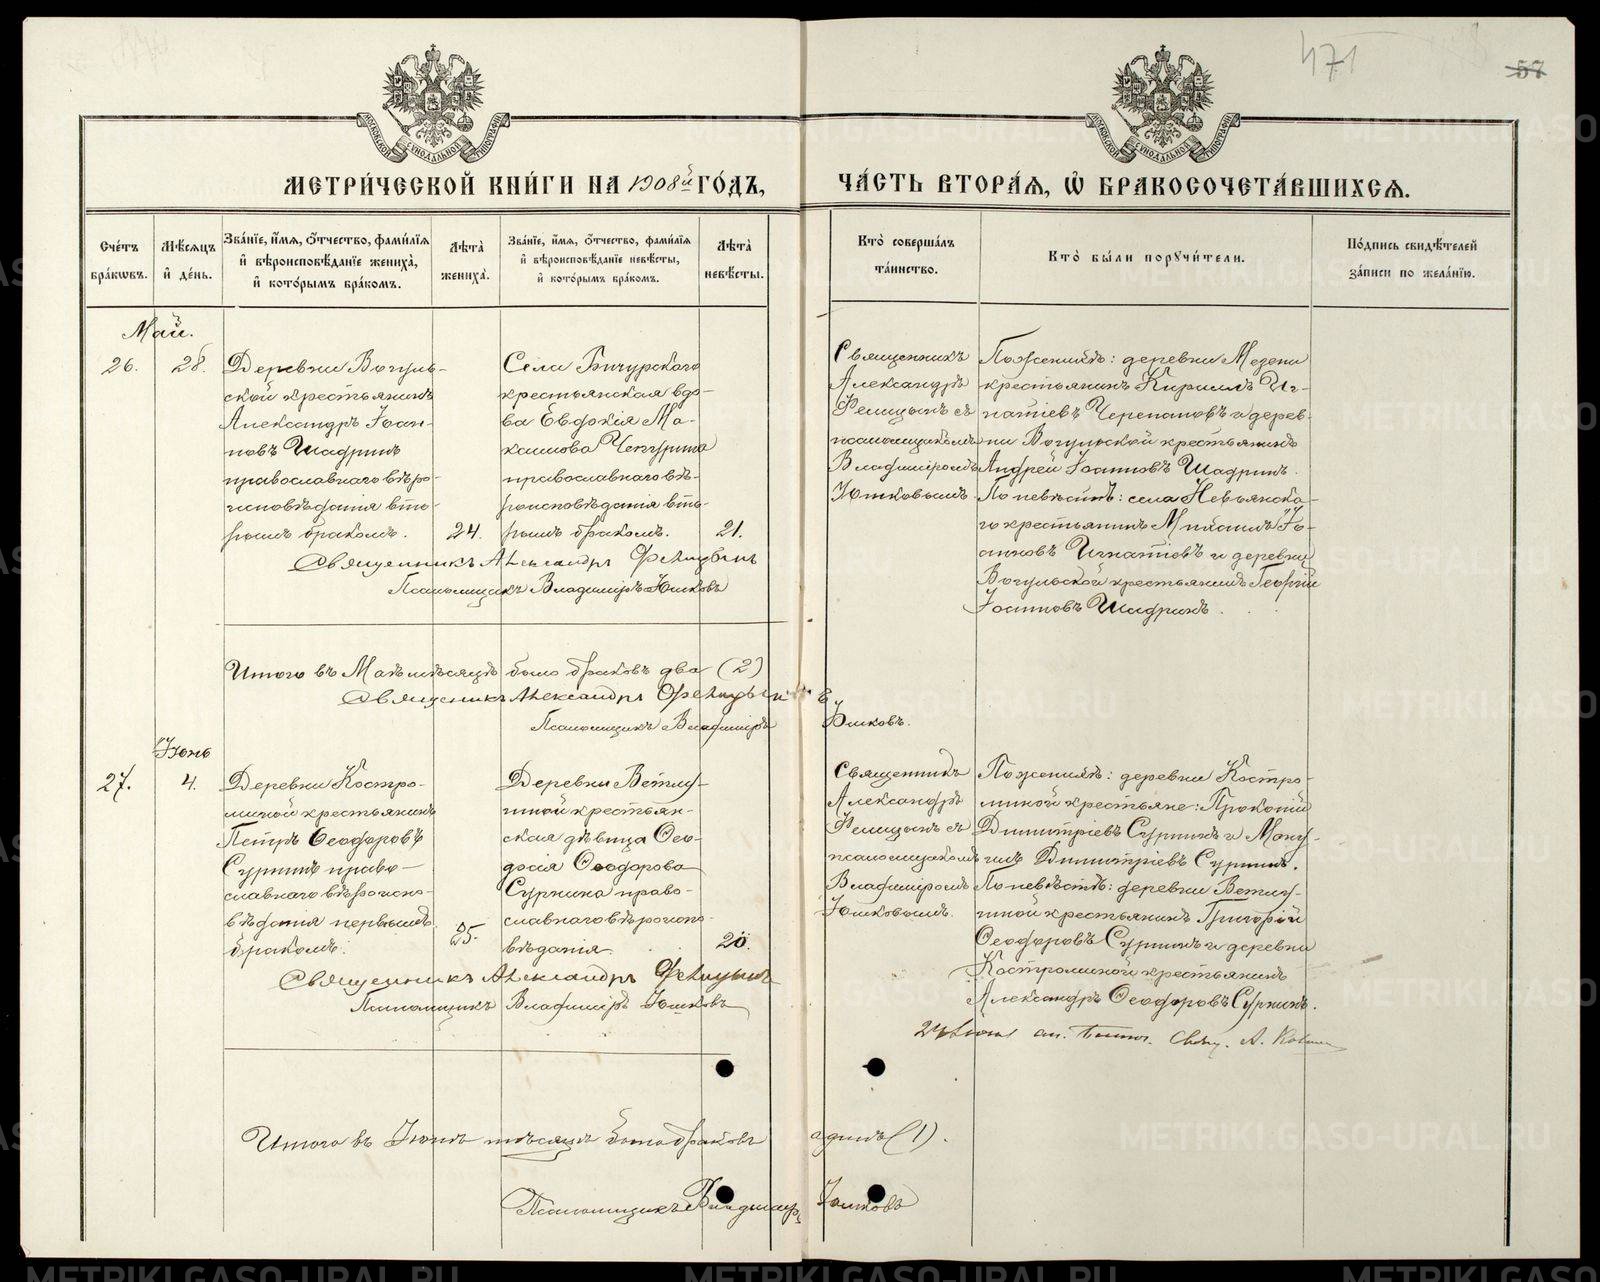 471
57
МОСКОВСКОЙ СѴНОДАЛЬНОЙ ТИПОГРАФІИ
МОСКОВСКОЙ СѴНОДАЛЬНОЙ ТИПОГРАФІИ
МЕТРИ́ЧЕСКОЙ КНИ́ГИ НА 1908й ГО́ДЪ,
ЧА́СТЬ ВТОРА́Я, Ѡ҆ БРАКОСОЧЕТА́ВШИХСЯ.
Сче́тъ бра́кѡвъ.
Мѣ́сяцъ и҆ де́нь.
Зва́нїе, и҆́мя, ѻ҆́тчество, фами́лїя и҆ вѣроисповѣ́данїе жениха̀, и҆ кото́рымъ бра́комъ.
Лѣ́та̀ жениха̀.
Зва́нїе, и҆́мя, ѻ҆́тчество, фами́лїя и҆ вѣроисповѣ́данїе невѣ́сты, и҆ кото́рымъ бра́комъ.
Лѣ́та̀ невѣ́сты.
Кто̀ соверша́лъ та́инство.
Кто̀ бы́ли порꙋчи́тели.
По́дпись свидѣ́телей за́писи по жела́нїю.
Май.
26.
28.
Деревни Вогуль-
ской крестьянинъ
Александръ Іоан-
новъ Шадринъ
православнаго вѣро-
исповѣданія вто-
рымъ бракомъ.
24.
Села Бичурскаго
крестьянская вдо-
ва Евдокія Ма-
каимова Чепурина
православнаго вѣ-
роисповѣданія вто-
рымъ бракомъ.
21.
Священникъ
Александръ
Фелицынъ съ
псаломщикомъ
Владиміромъ
Юшковымъ.
По женихѣ: деревни Медени
крестьянинъ Кириллъ Иг-
натіевъ Черепановъ и дерев-
ни Вогульской крестьянинъ
Андрей Іоанновъ Шадринъ.
По невѣстѣ: села Невьянска-
го крестьянинъ Михаилъ Іо-
анновъ Игнатіевъ и деревни
Вогульской крестьянинъ Георгій
Іоанновъ Шадринъ.
Священникъ Александръ Фелицынъ
Псаломщикъ Владиміръ Юшковъ
Итого въ Маѣ мѣсяцѣ было браковъ два (2)
Священникъ Александръ Фелицынъ
Псаломщикъ Владиміръ Юшковъ.
Іюнь
27.
4.
Деревни Костро-
миной крестьянинъ
Петръ Ѳеодоровъ
Сурнинъ право-
славнаго вѣроиспо-
вѣданія первымъ
бракомъ.
25.
Деревни Ветлу-
гиной крестьян-
ская дѣвица Ѳео-
досія Ѳеодорова
Сурнина право-
славнаго вѣроиспо-
вѣданія.
20.
Священникъ
Александръ
Фелицынъ съ
псаломщикомъ
Владиміромъ
Юшковымъ.
По женихѣ: деревни Костро-
миной крестьяне: Прокопій
Димитріевъ Сурнинъ и
Димитріевъ Сурнинъ.
По невѣстѣ: деревни Ветлу-
гиной крестьянинъ Григорій
Ѳеодоровъ Сурнинъ и деревни
Костроминой крестьянинъ
Александръ Ѳеодоровъ Сурнинъ.
Священникъ Александръ Фелицынъ
Псаломщикъ Владиміръ Юшковъ
Итого въ Іюнѣ мѣсяцѣ было браковъ одинъ (1).
Псаломщикъ Владиміръ Юшковъ
METRIKI.GASO-URAL.RU